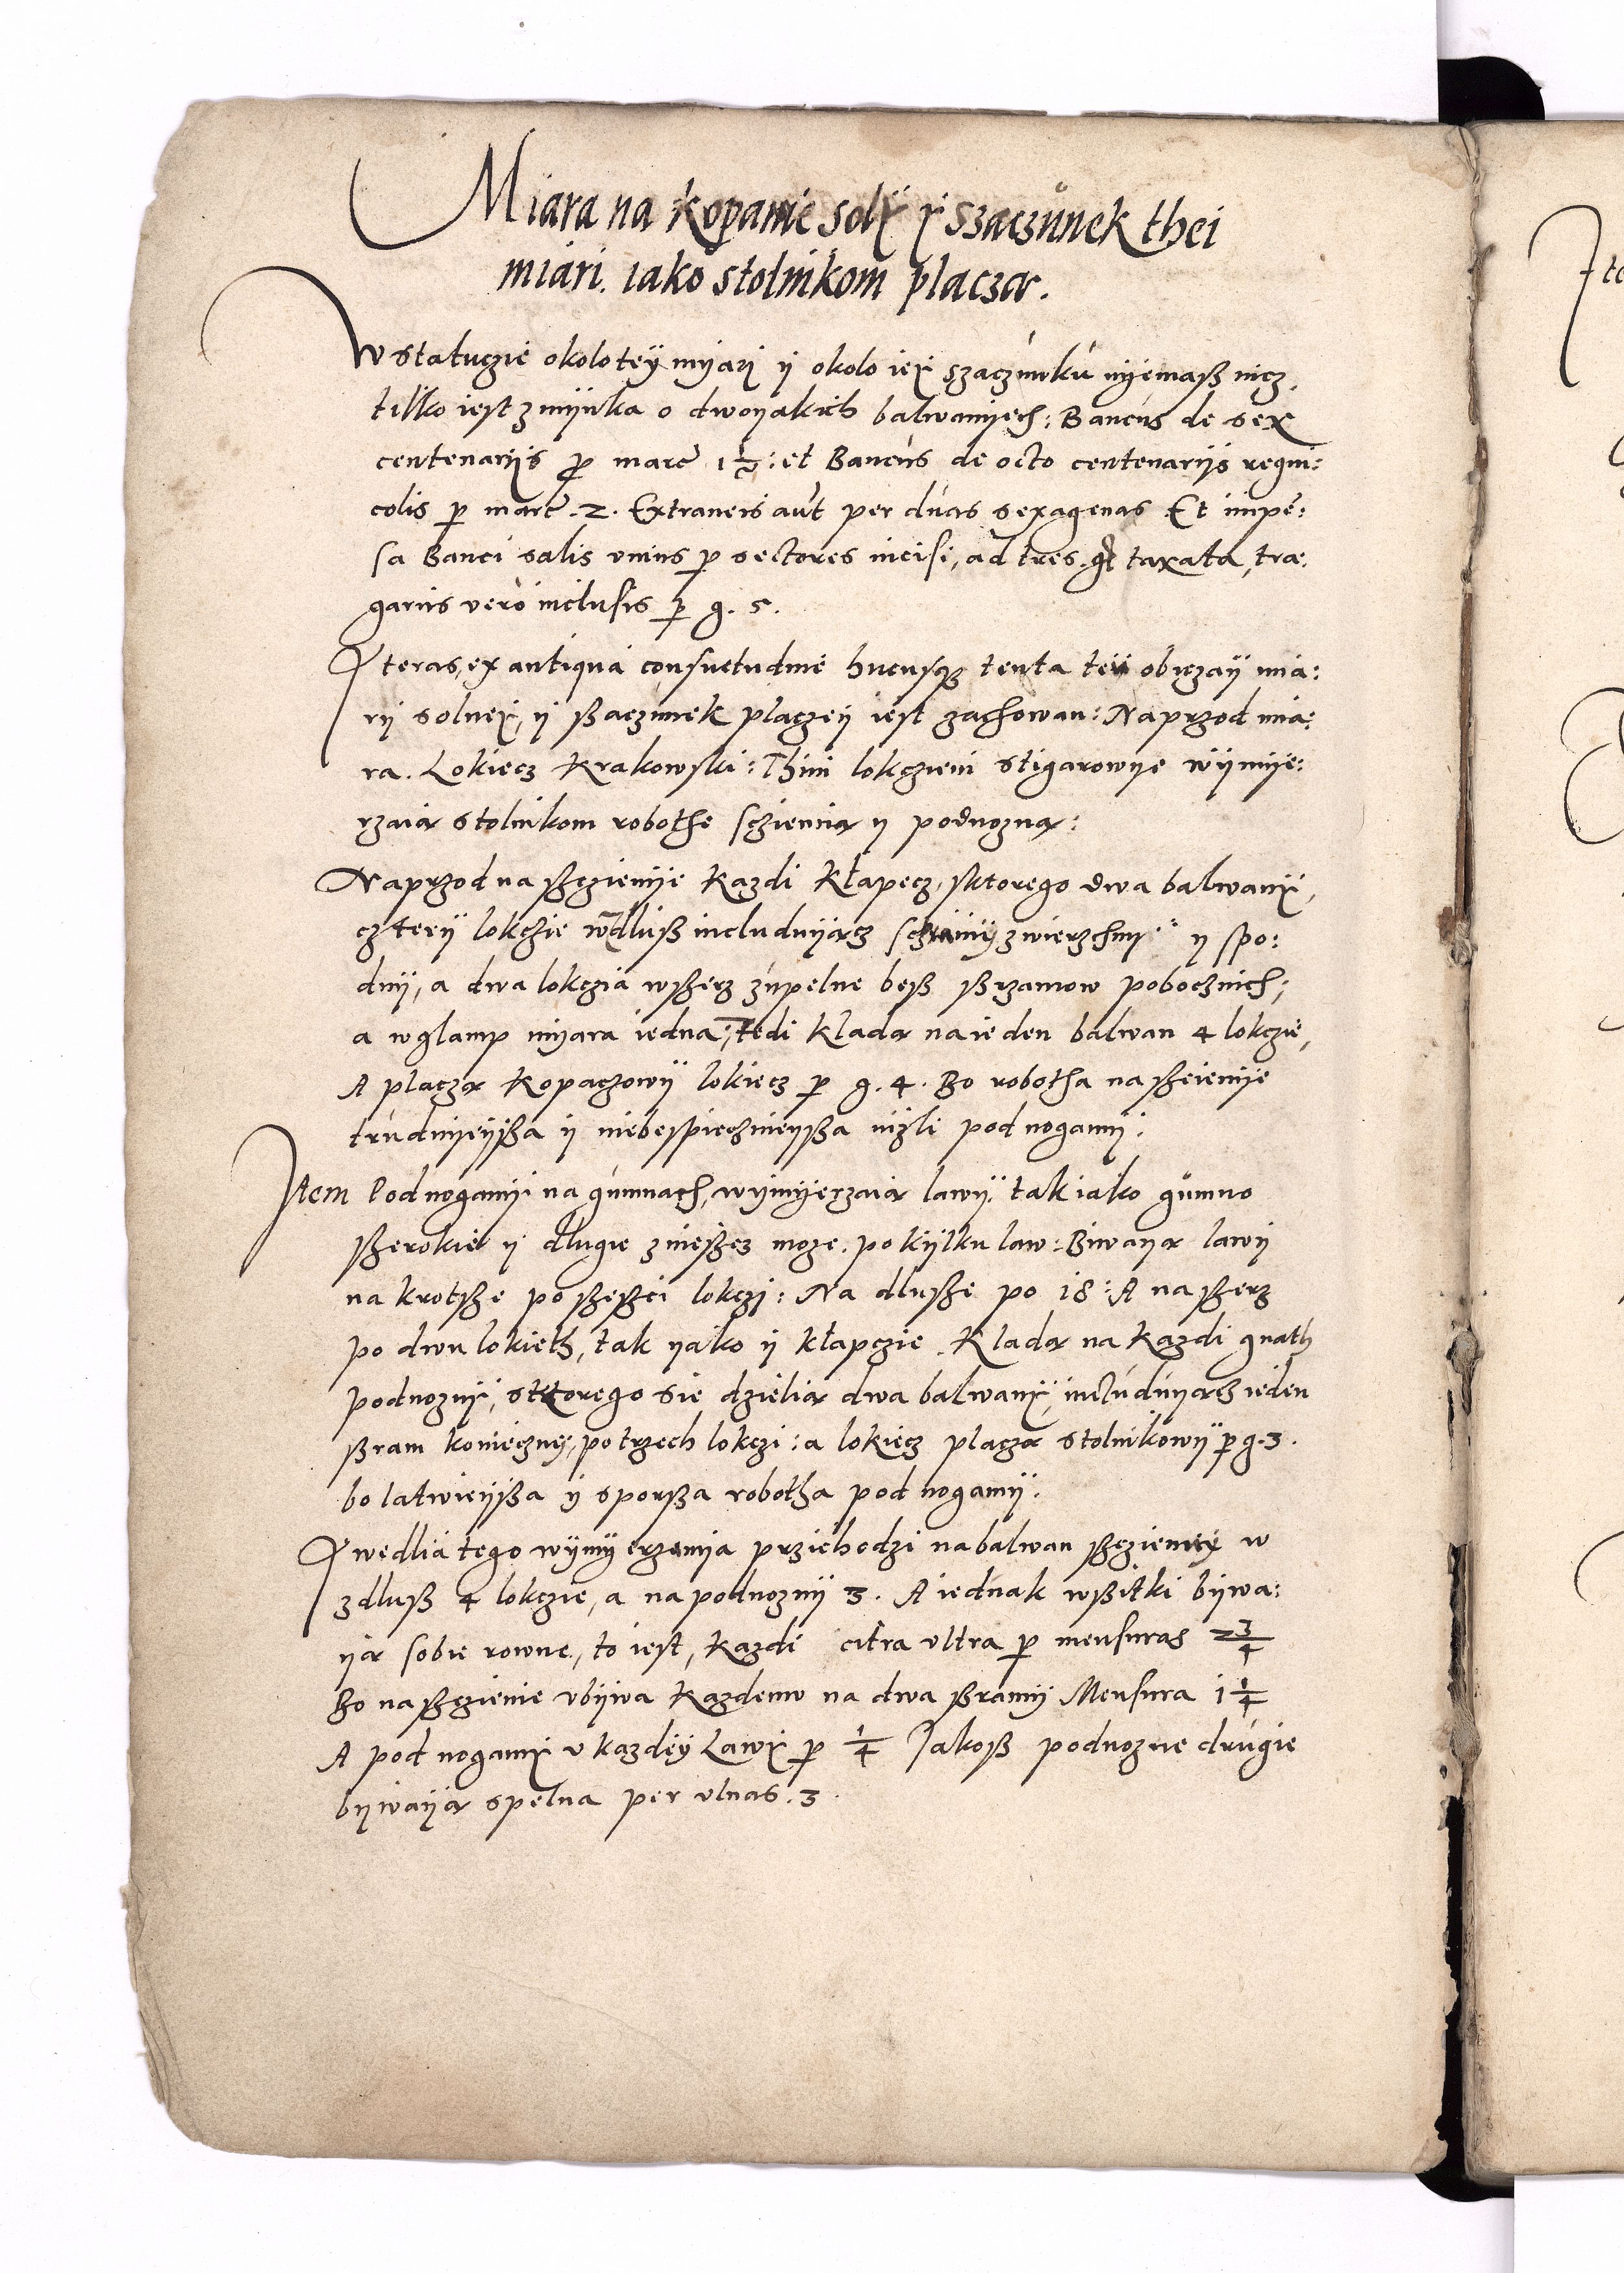 Miara na kopanie soly y szaczůnek thei
miari. iako stolnikom placzą.
W statuczie okolo tey myari y okolo iey szaczunku nyemaß nicz,
tilko iest zmynka o dwoyakich balwanyech: Bancus de sex
centenarijs p marc 1½: et Bancus de octo centenarijs regni:
colis p marc .2. Extraneis aut per duas sexagenas Et impe:
sa Banci salis unius p sectores incisi, ad tres. gr taxata, tra:
gariis vero inclusis p g. 5.
Iteras, ex antiqua consuetudine hucusq tenta teÿ obiczay mia:
ry solney, y ßaczunek placzey iest zachowan: Naprzod mia:
ra. Lokiecz Krakowski: Thim lokcziem stigarowye wymye:
rzaią stolnikom robothe sczienną y podnozną:
Naprzod na ßczienije kazdi kłapecz, sktorego dwa balwany,
cztery lokczie wzdluß includuyącz schramy zwierzchny y spo:
dny, a dwa lokczia wßerz zupelne beß ßramow pobocznich;
a wglamp myara iedna, tedi kladą na ieden balwan 4 lokczie,
A placzą kopaczowy lokiecz p g. 4. Bo robotha na ßcienije
trudnyeyßa y niebespiecznieyßa nizli pod nogamy.
Item Pod nogamy na gumnach, wymyerzaią lawy, tak iako gůmno
ßerokie y dlugie znießcz moze. po kylku law: Biwayą lawy
na krotße po ßeßci lokczi: Na dlußße po 18: A na ßerz
po dwu lokieth, tak yako y kłapczie. Kladą na kazdi gnath
podnozny, sktorego sie dzielią dwa balwany, includuyącz ieden
ßram konieczny, po trzech lokczi: a lokiecz placzą stolnikowy p g. 3.
bo latwieyßa y sporßa robotha pod nogamy.
I wedlia tego wymyerzenija przichodzi na balwan ßczienny w
zdluß 4 lokczie, a na podnozny 3. A iednak wßitki bywa:
yą sobie rowne, to iest, kazdi citra ultra p mensuras 2¾
Bo na ßczienie ubywa kazdemu na dwa ßramy Mensura 1¼
A pod nogamy u kazdey Lawy p ¼ Jakoß podnozne drugie
bywaią spelna per ulnas. 3.